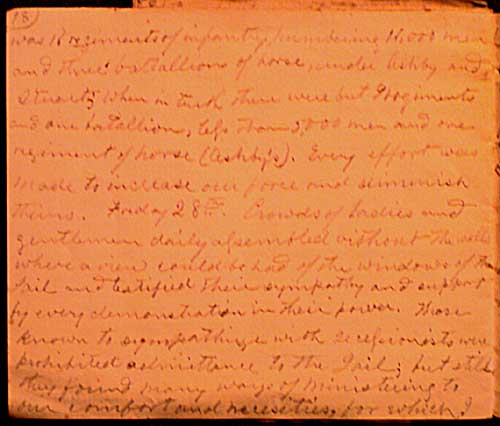 18
was 12 regiments of infantry, numbering 16,000 men
and three battallions of horse, under Ashby and
Stuart; When in truth there were but regiments
and one batallion, less than 5,000 men and one
regiment of horse (Ashby's). Every effort was
made to increase our force and diminish
theirs. Friday 28th. Crowds of Ladies and
gentlemen daily assembled without the walls
where a view could be had of the windows of the
Jail and testified their sympathy and support
by every demonstration in their power. Those
known to sympathize with secessionists were
prohibited admittance to the Jail; but still
they found many ways of ministering to
our comfort and necesities, for which I